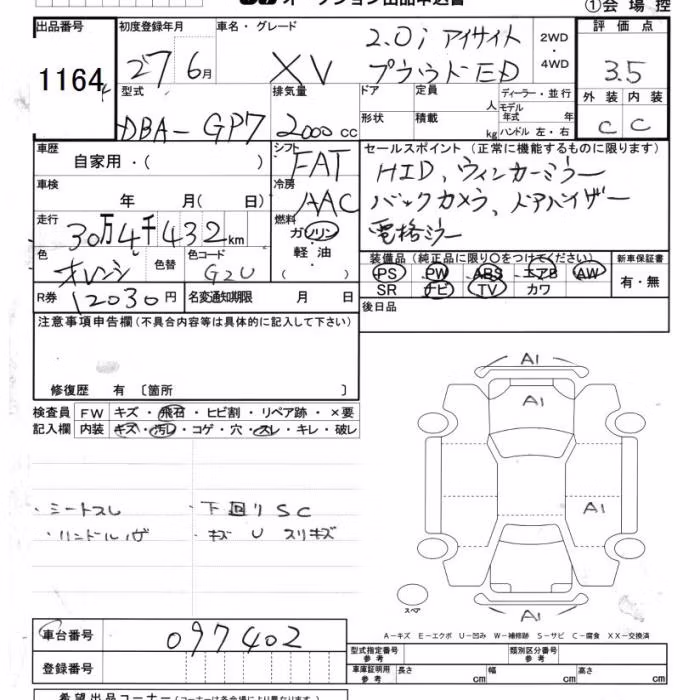 オークション出品申込書
①会場控
出品番号 初度登録年月 車名・グレード 評価点
1164 27 6月 XV 2.0i アイサイト プラウドED 2WD・4WD 3.5
型式 排気量 ドア 定員 人 ディーラー・並行 外装 内装
DBA-GP7 2000cc 形状 積載 kg モデル年式 年 ハンドル 左・右 C C
車歴 自家用・( ) シフト FAT
セールスポイント(正常に機能するものに限ります)
HID、ウィンカーミラー
バックカメラ、ドアバイザー
電格ミラー
車検 年 月( 日) 冷房 AAC
走行 30万4千432km 燃料 ガソリン 軽油 ( )
色 オレンジ 色替 色コード G2U
装備品(純正品に限り○をつけてください) 新車保証書
PS PW ABS エアB AW 有・無
SR ナビ TV カワ
R券 12030円 名変通知期限 月 日
後日品
注意事項申告欄(不具合内容等は具体的に記入して下さい)
修復歴 有 〔箇所 〕
検査員 FW キズ・飛石・ヒビ割・リペア跡・×要
記入欄 内装 キズ・汚レ・コゲ・穴・スレ・キレ・破レ
・シートスレ ・下回りSC
・ハンドルハゲ ・キズ U スリキズ
A1
A1
A1
A1
スペア
A-キズ E-エクボ U-凹み W-補修跡 S-サビ C-腐食 XX-交換済
車台番号 097402
型式指定番号 参考 類別区分番号 参考
登録番号 車庫証明用 参考 長さ cm 幅 cm 高さ cm
希望出品コーナー(コーナーは会場により異なります)